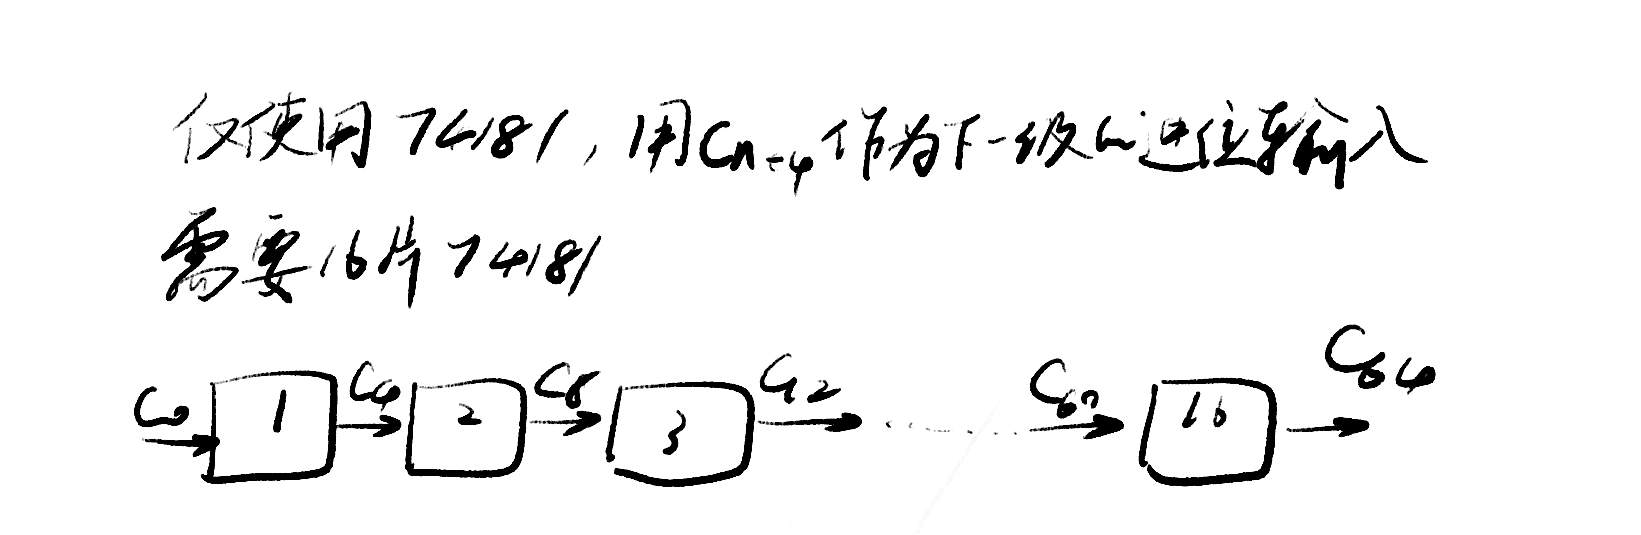 仅使用74181，用Cn+4作为下一级的进位输入
需要16片74181
C0 1 C4 2 C8 3 C12 ...... C60 16 C64